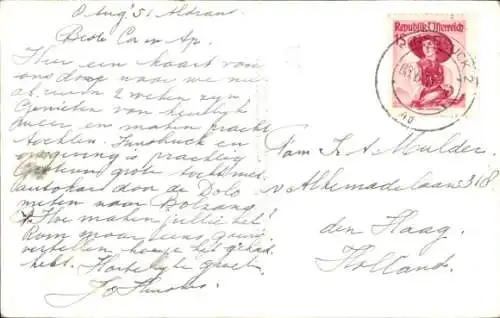 Aug '51 Aldrans
Beste Co en Ap.
Hier een kaart van
ons dorp waar we nu
al ruim 2 weken zijn
Genieten van heerlijk
weer en maken pracht
tochten. Innsbruck en
omgeving is prachtig
Gisteren grote tocht met
autokar door de Dolo
mieten naar Bolzano
Hoe maken jullie het?
Kom maar eens gauw
vertellen hoe je het gehad
hebt. Hartelijke groet
Jo
Republik Österreich
Fam. K. A. Mulder.
v Alkemadelaan 318
den Haag.
Holland.